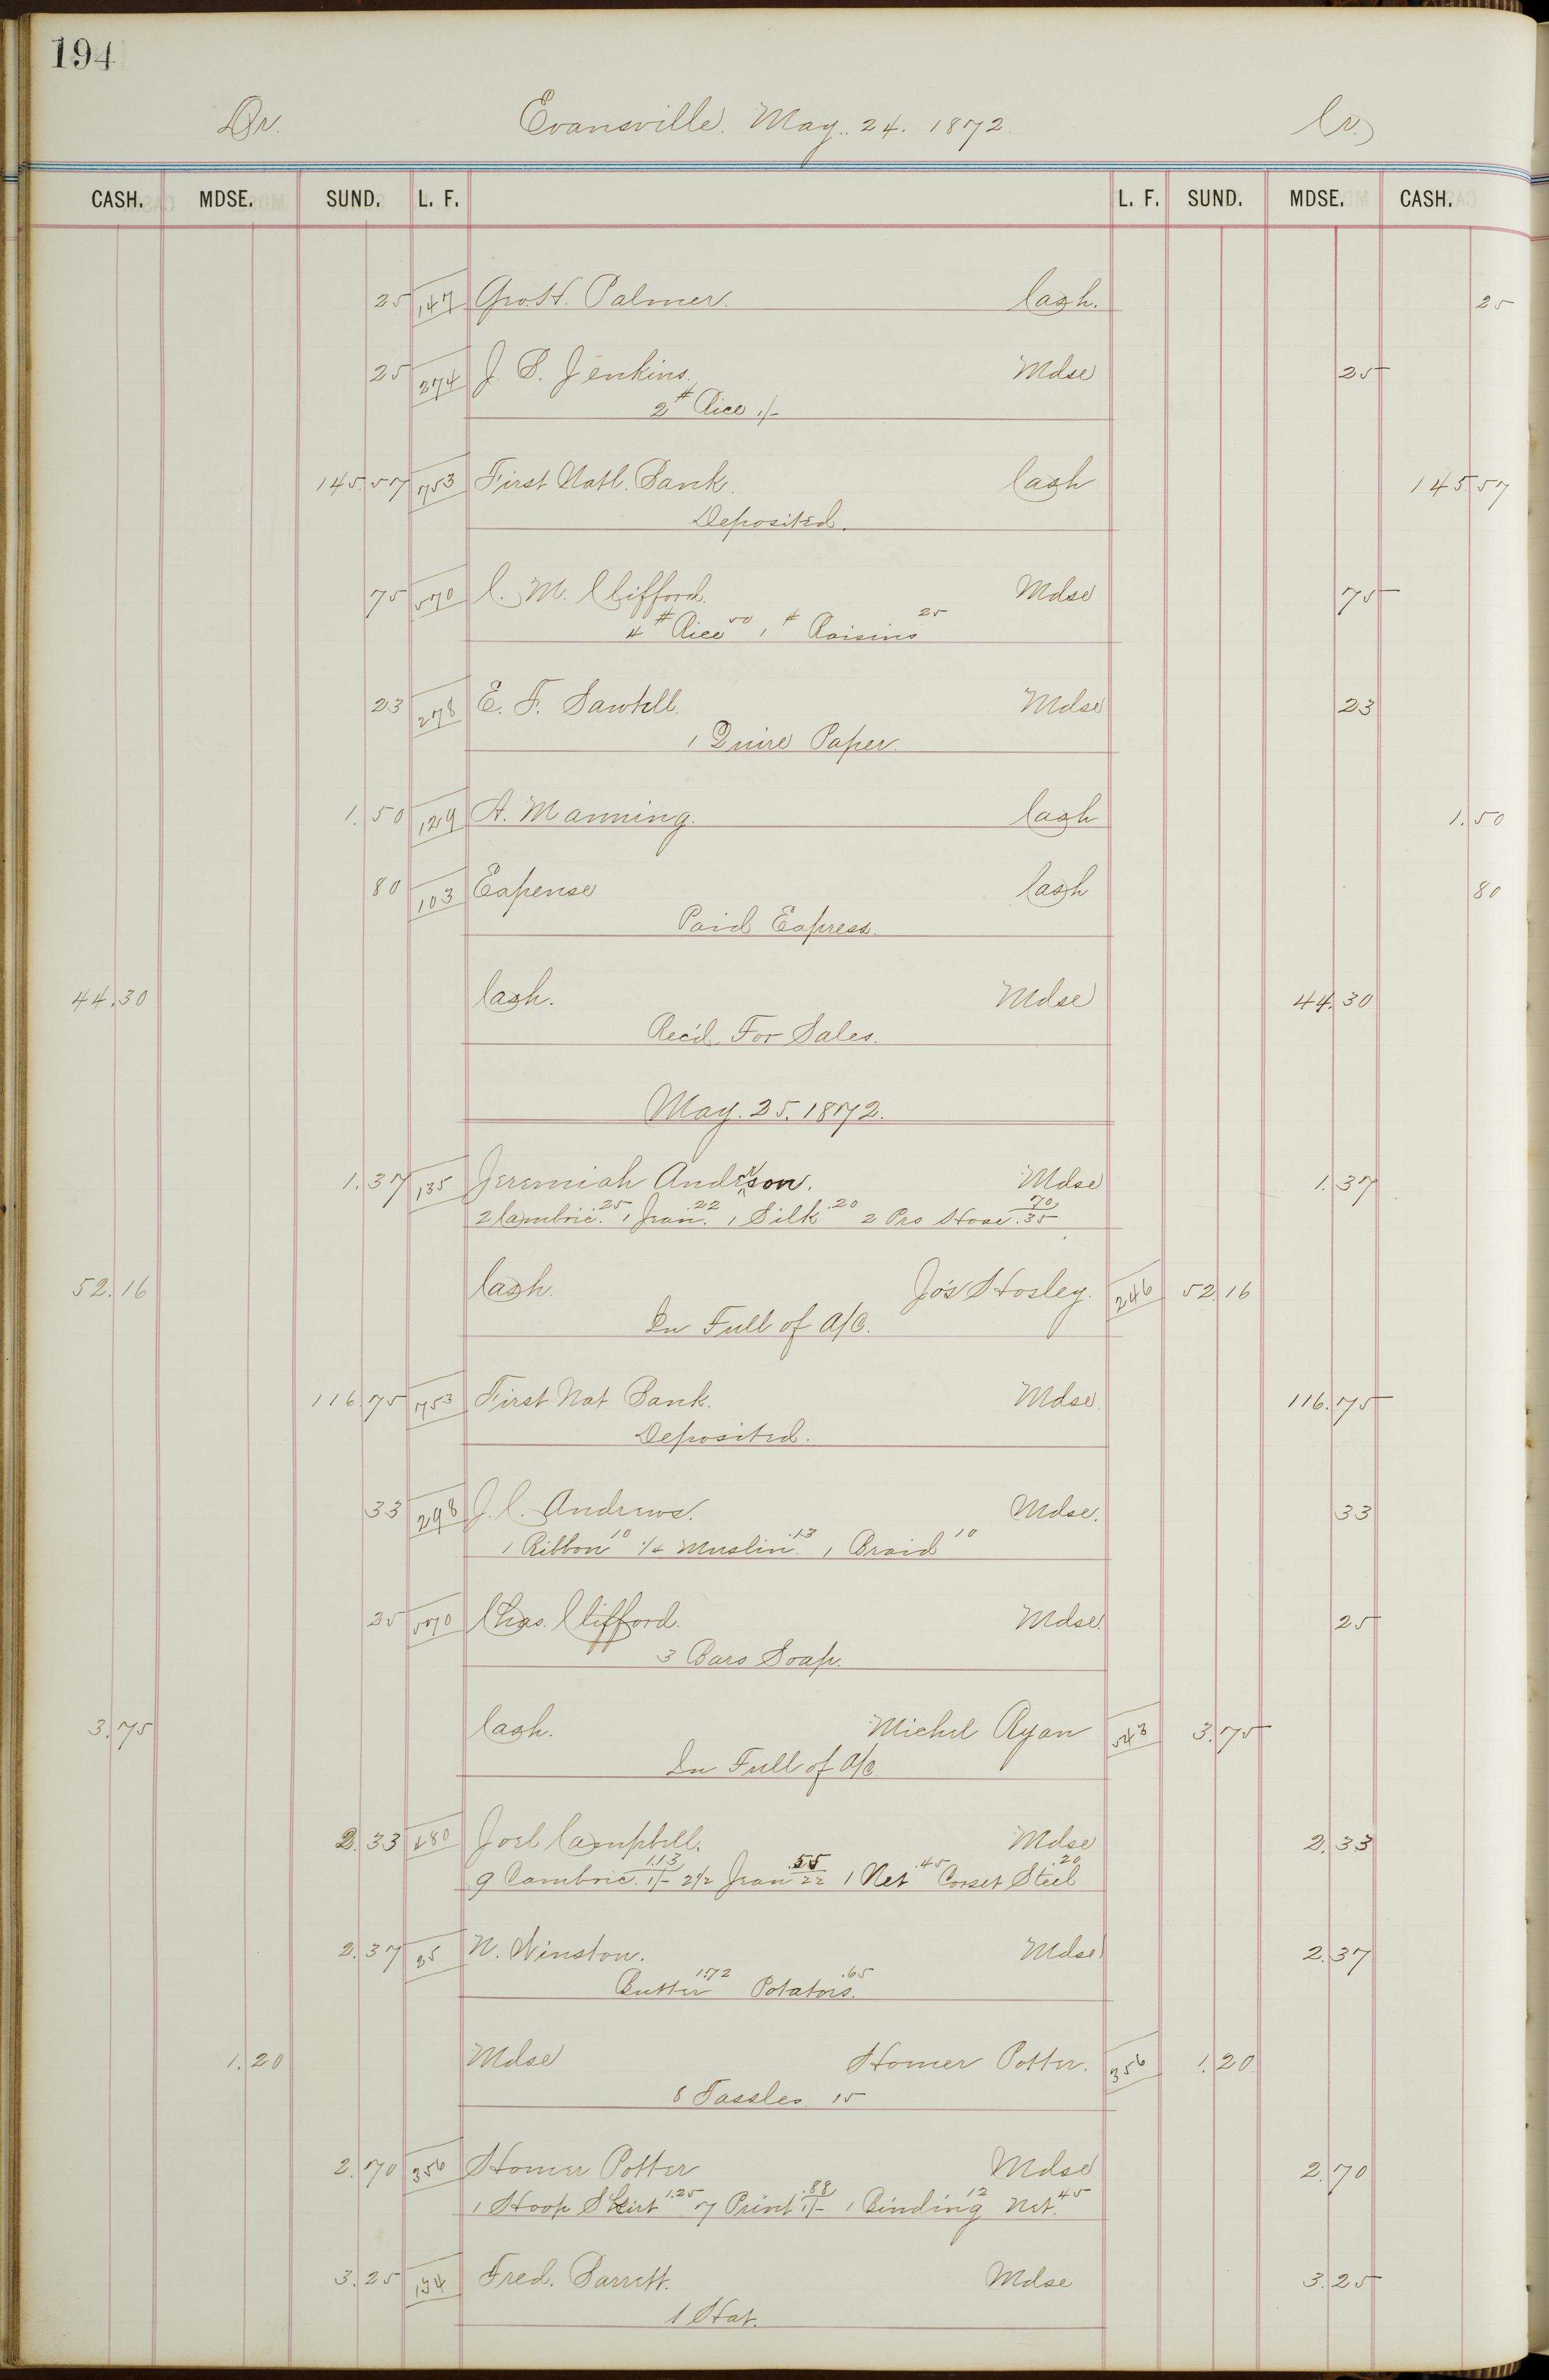 194
Dr. Evansville. May. 24. 1872. Cr.
CASH. MDSE. SUND. L. F. L. F. SUND. MDSE. CASH.
25 147 Geo. H. Palmer. Cash. 25
25 274 J. S. Jenkins. Mdse 25
2# Rice 1/-
145.57 753 First Natl. Bank. Cash 145.57
Deposited.
75 570 C. M. Clifford. Mdse 75
4# Rice 50 1# Raisins 25
23 278 E. F. Sawtell. Mdse 23
1 Quire Paper.
1.50 129 A. Manning. Cash 1.50
80 103 Expense Cash 80
Paid Express.
44.30 Cash. Mdse 44.30
Rec'd For Sales.
May. 25. 1872.
1.37 135 Jeremiah Anderson. Mdse 1.37
2 Cambric. .25 1 Jean. .22 1 Silk .20 2 Prs Hose .35 70
52.16 Cash. Jos Hosley. 246 52.16
In Full of A/C.
116.75 753 First Nat. Bank. Mdse. 116.75
Deposited.
33 298 J. C. Andrews. Mdse. 33
1 Ribbon 10 1/4 Muslin. .13 1 Braid 10
25 570 Chas. Clifford. Mdse. 25
3 Bars Soap.
3.75 Cash. Michel Ryan 543 3.75
In Full of A/C
2.33 480 Joel Campbell. Mdse 2.33
9 Cambric. 1/- 1.13 2 1/2 Jean 22 .55 1 Net .45 Corset Steel .20
2.37 35 N. Winston. Mdse 2.37
Butter 1.72 Potatoes. .65
1.20 Mdse Homer Potter. 356 1.20
8 Tassles. 15
2.70 356 Homer Potter Mdse 2.70
1 Hoop Skirt 1.25 7 Print 1/- .88 1 Binding 12 Net. 45
3.25 134 Fred. Barrett. Mdse 3.25
1 Hat.